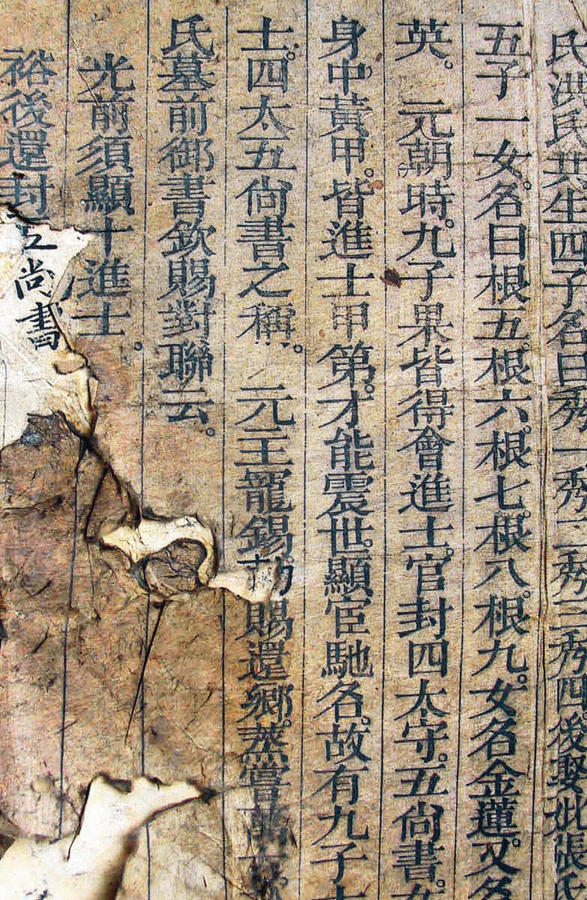 氏洪氏共生四子名曰秀一秀二秀三秀四後娶妣張氏
五子一女。名曰根五。根六。根七。根八。根九。女名金蓮。又名
英。 元朝時。九子果皆得會進士。官封四太守。五尚書。女
身中黃甲。皆進士甲第。才能震世。顯宦馳名。故有九子十
士。四太五尚書之稱。 元王寵錫 賜還鄉。蒸嘗
氏墓前御書欽賜對聯云。
光前須顯十進士。
裕後還封五尚書